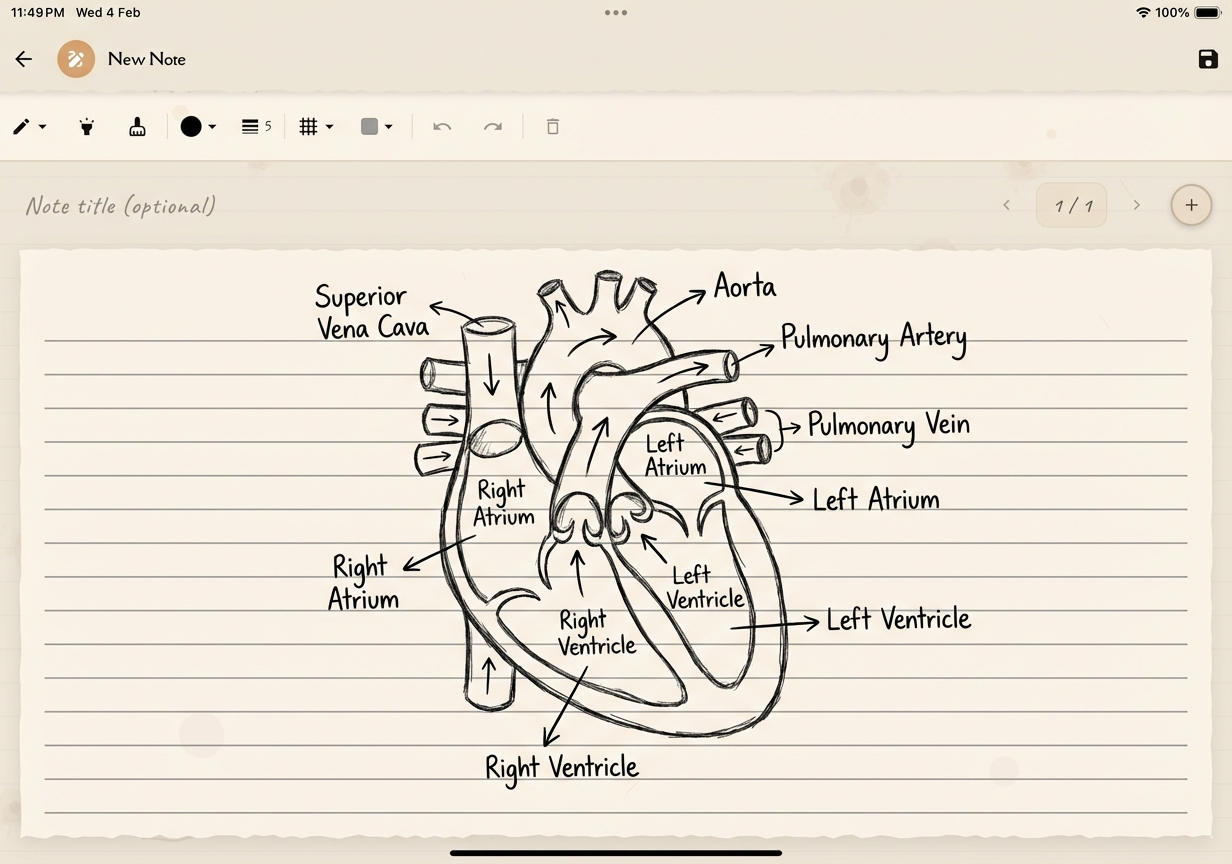 11:49 PM Wed 4 Feb
100%
New Note
5
Note title (optional)
1 / 1
Superior
Vena Cava
Aorta
Pulmonary Artery
Pulmonary Vein
Left
Atrium
Left Atrium
Right
Atrium
Right
Atrium
Left
Ventricle
Left Ventricle
Right
Ventricle
Right Ventricle